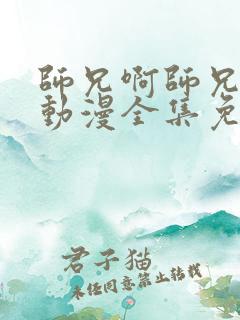 師兄啊師兄
動漫全集免
君子猫
未经同意禁止转载